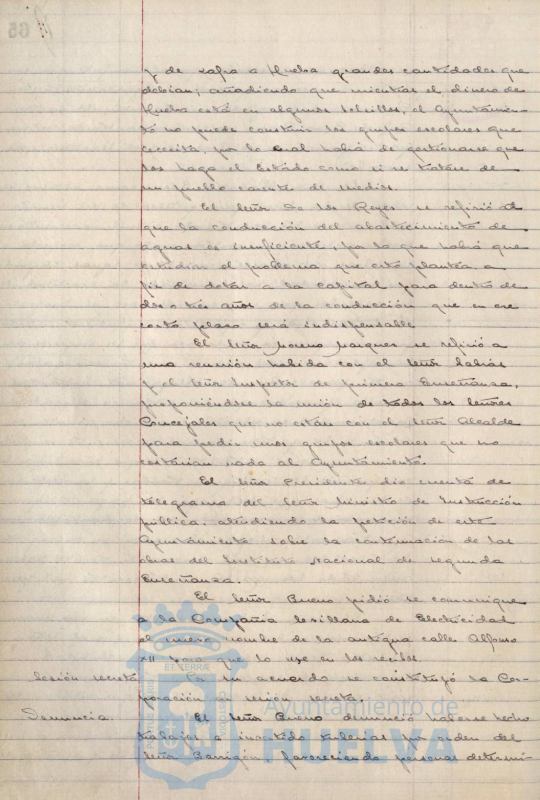 y de zafra a Huelva grandes cantidades que
debían; añadiendo que mientras el dinero de
Huelva está en algunos bolsillos, el Ayuntamien-
tó no puede construir los grupos escolares que
necesita, por lo cual habrá de gestionarse que
los haga el Estado como si se tratase de
un pueblo carente de medios.
El Señor de los Reyes se refirió al
que la conducción del abastecimiento de
aguas es insuficiente, por lo que habrá que
estudiar el problema que esto plantea, a
fin de dotar a la capital para dentro de
dos o tres años de la conducción que en ese
corto plazo será indispensable.
El Señor Moreno Marquez se refirió a
una reunión habida con el Señor
y el Señor Inspector de primera Enseñanza,
proponiéndose la unión de todos los Señores
Concejales que no están con el Señor Alcalde
para pedir unos grupos escolares que no
costarían nada al Ayuntamiento.
El Señor Presidente dio cuenta de
telegrama del Señor Ministro de Instrucción
pública, atendiendo la petición de este
Ayuntamiento sobre la continuación de las
obras del Instituto Nacional de segunda
Enseñanza.
El Señor Bueno pidió se comunique
a la Compañía Sevillana de Electricidad
el nuevo nombre de la antigua calle Alfonso
XII para que lo use en los recibos.
Sesión secreta. Por un acuerdo se constituyó la Cor-
poración en sesión secreta.
Denuncia. El Señor Bueno denunció haberse hecho
trabajos e invertido tuberías por orden del
Señor Barrigón, favoreciendo personas determi-
Ayuntamiento de
HUELVA